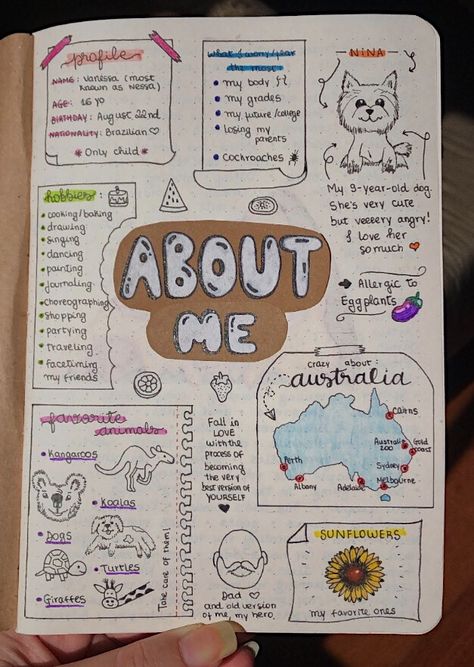 profile
NAME: Vanessa (most
known as Nessa)
AGE: 16 yo
BIRTHDAY: August 22nd
NATIONALITY: Brazilian
Only child
what I worry/fear
the most
my body
my grades
my future/college
losing my
parents
cockroaches
NiNA
My 9-year-old dog.
She's very cute
but veeeery angry!
I love her
so much
hobbies:
cooking/baking
drawing
singing
dancing
painting
journaling
choreographing
shopping
partying
traveling
facetiming
my friends
ABOUT
ME
Allergic to
Eggplants
crazy about:
australia
Cairns
Australia
zoo
Gold
coast
Perth
Sydney
Albany
Adelaide
Melbourne
favorite
animals
Kangaroos
Koalas
Dogs
Turtles
Giraffes
Take care of them!
Fall in
LOVE
with the
process of
becoming
the very
best version of
YOURSELF
Dad
and old version
of me, my hero.
SUNFLOWERS
my favorite ones